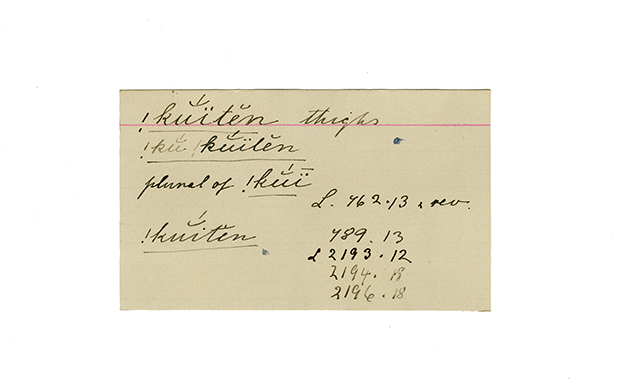 !kŭĭtĕn thighs
!kŭ /kŭitĕn
plural of !kŭï
L. 762.13 & rev.
!kŭitĕn 789. 13
L 2193. 12
2194. 18
2196. 18